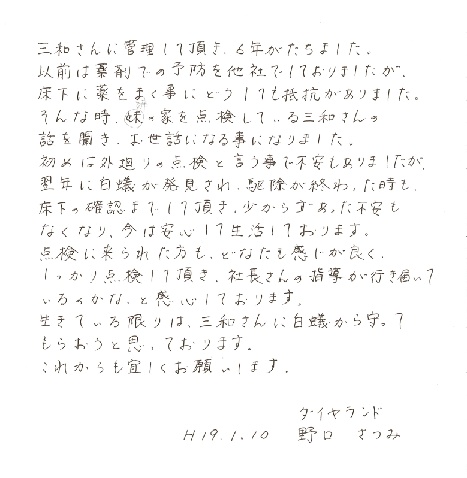 三和さんに管理して頂き、6年がたちました。
以前は薬剤での予防を他社でしておりましたが、
床下に薬をまく事にどうしても抵抗がありました。
そんな時、妹の家を点検している三和さんの
話を聞き、お世話になる事になりました。
初めは外廻りの点検と言う事で不安もありましたが、
翌年に白蟻が発見され、駆除が終わった時も、
床下の確認までして頂き、少からずあった不安も
なくなり、今は安心して生活しております。
点検に来られた方も、どなたも感じが良く、
しっかり点検して頂き、社長さんの指導が行き届いて
いるのかな、と感心しております。
生きている限りは、三和さんに白蟻から守って
もらおうと思っております。
これからも宜しくお願いします。
ダイヤランド
H19.1.10 野口 さつみ